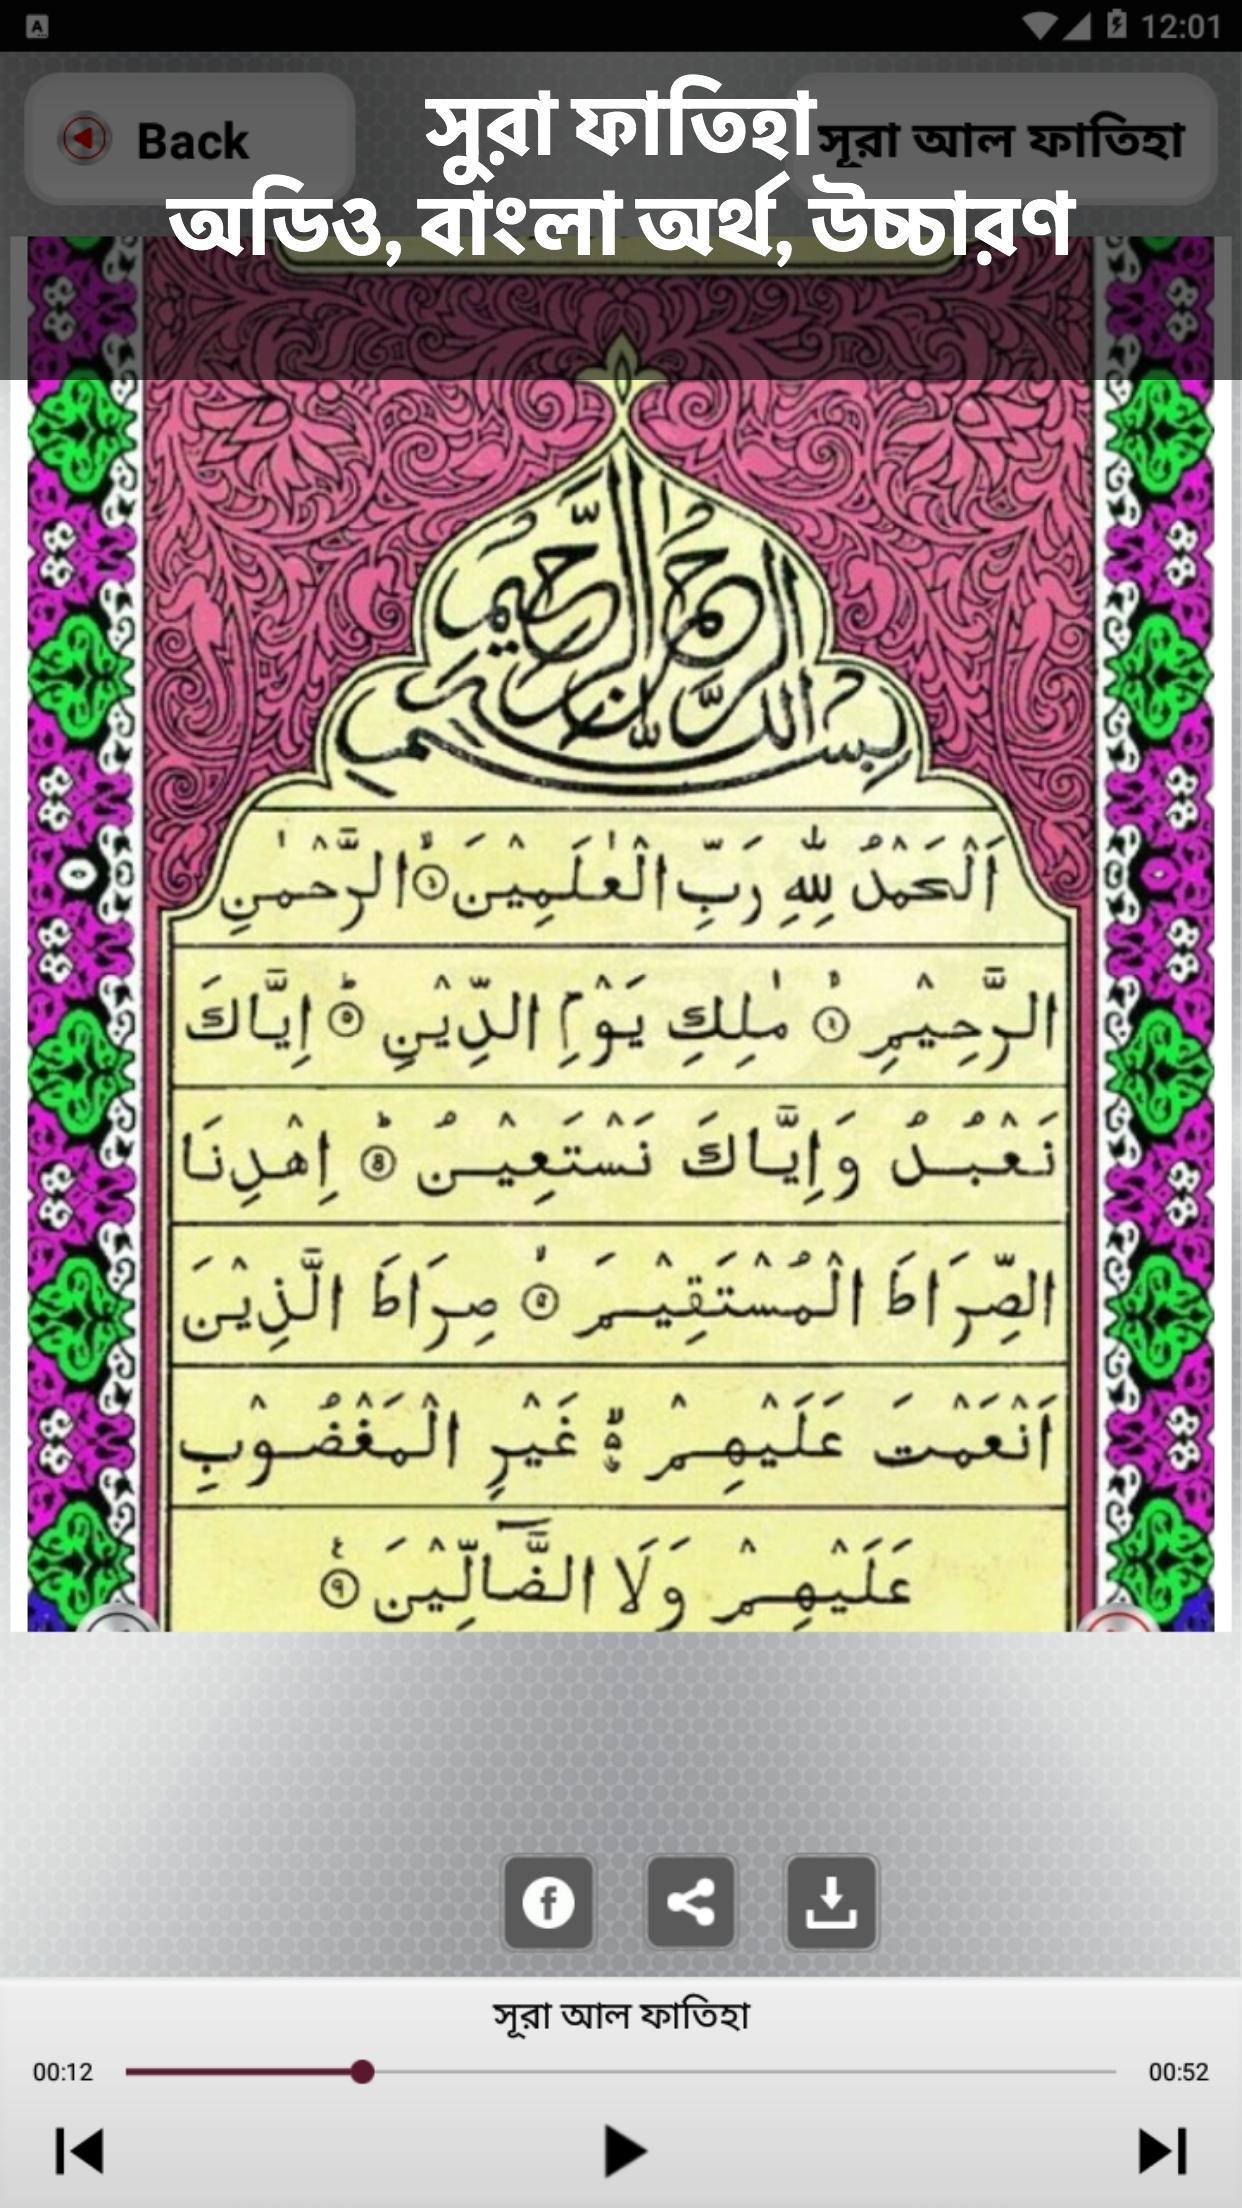 12:01
Back
সূরা আল ফাতিহা
সুরা ফাতিহা
অডিও, বাংলা অর্থ, উচ্চারণ
بسم الله الرحمن الرحيم
اَلْحَمْدُ لِلّٰهِ رَبِّ الْعٰلَمِيْنَ ۙ﴿١﴾ الرَّحْمٰنِ
الرَّحِيْمِ ۙ مٰلِكِ يَوْمِ الدِّيْنِ ؕ اِيَّاكَ
نَعْبُدُ وَاِيَّاكَ نَسْتَعِيْنُ ؕ اِهْدِنَا
الصِّرَاطَ الْمُسْتَقِيْمَ ۙ صِرَاطَ الَّذِيْنَ
اَنْعَمْتَ عَلَيْهِمْ غَيْرِ الْمَغْضُوْبِ
عَلَيْهِمْ وَلَا الضَّآلِّيْنَ
সূরা আল ফাতিহা
00:12
00:52